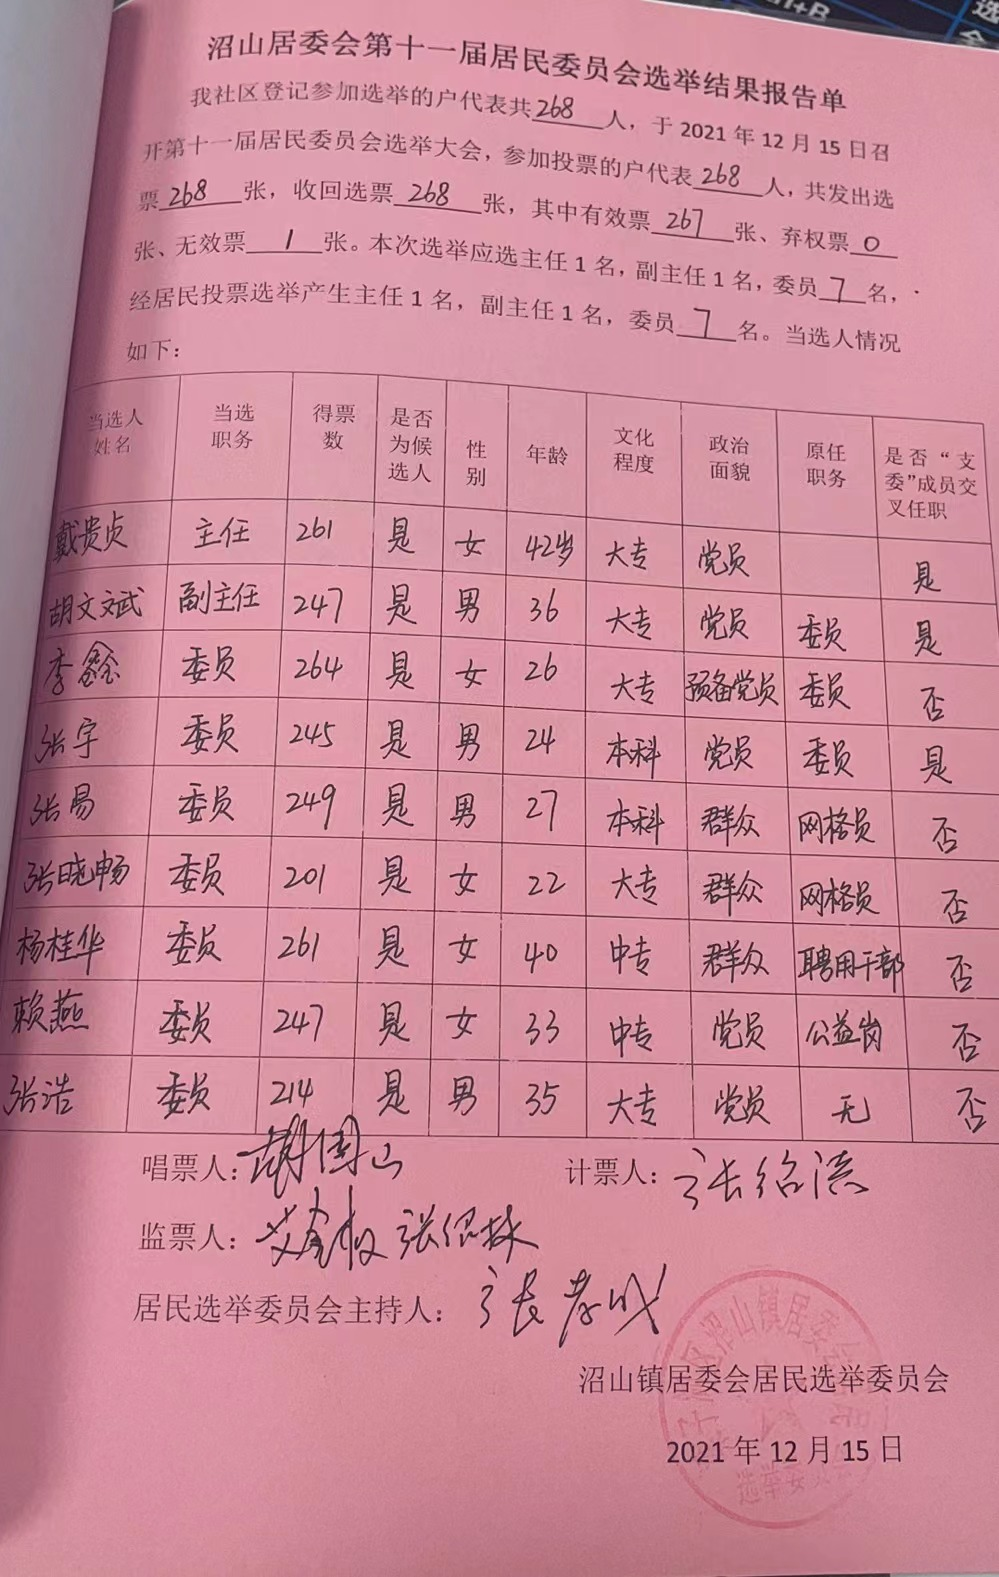 沼山居委会第十一届居民委员会选举结果报告单
我社区登记参加选举的户代表共268人，于2021年12月15日召
开第十一届居民委员会选举大会，参加投票的户代表268人，共发出选
票268张，收回选票268张，其中有效票267张、弃权票0
张、无效票1张。本次选举应选主任1名，副主任1名，委员7名，
经居民投票选举产生主任1名，副主任1名，委员7名。当选人情况
如下：
当选人姓名 当选职务 得票数 是否为候选人 性别 年龄 文化程度 政治面貌 原任职务 是否“支委”成员交叉任职
戴贵贞 主任 261 是 女 42岁 大专 党员 是
胡文斌 副主任 247 是 男 36 大专 党员 委员 是
李鑫 委员 264 是 女 26 大专 预备党员 委员 否
张宇 委员 245 是 男 24 本科 党员 委员 是
张易 委员 249 是 男 27 本科 群众 网格员 否
张晓畅 委员 201 是 女 22 大专 群众 网格员 否
杨桂华 委员 261 是 女 40 中专 群众 聘用干部 否
赖燕 委员 247 是 女 33 中专 党员 公益岗 否
张浩 委员 214 是 男 35 大专 党员 无 否
唱票人：胡国山 计票人：张绍
监票人：
居民选举委员会主持人：张孝成
沼山镇居委会居民选举委员会
2021年12月15日